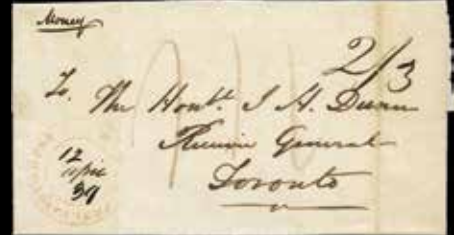 Money
2/3
To The Honble. J H. Dunn
Receiver General
Toronto
12
39